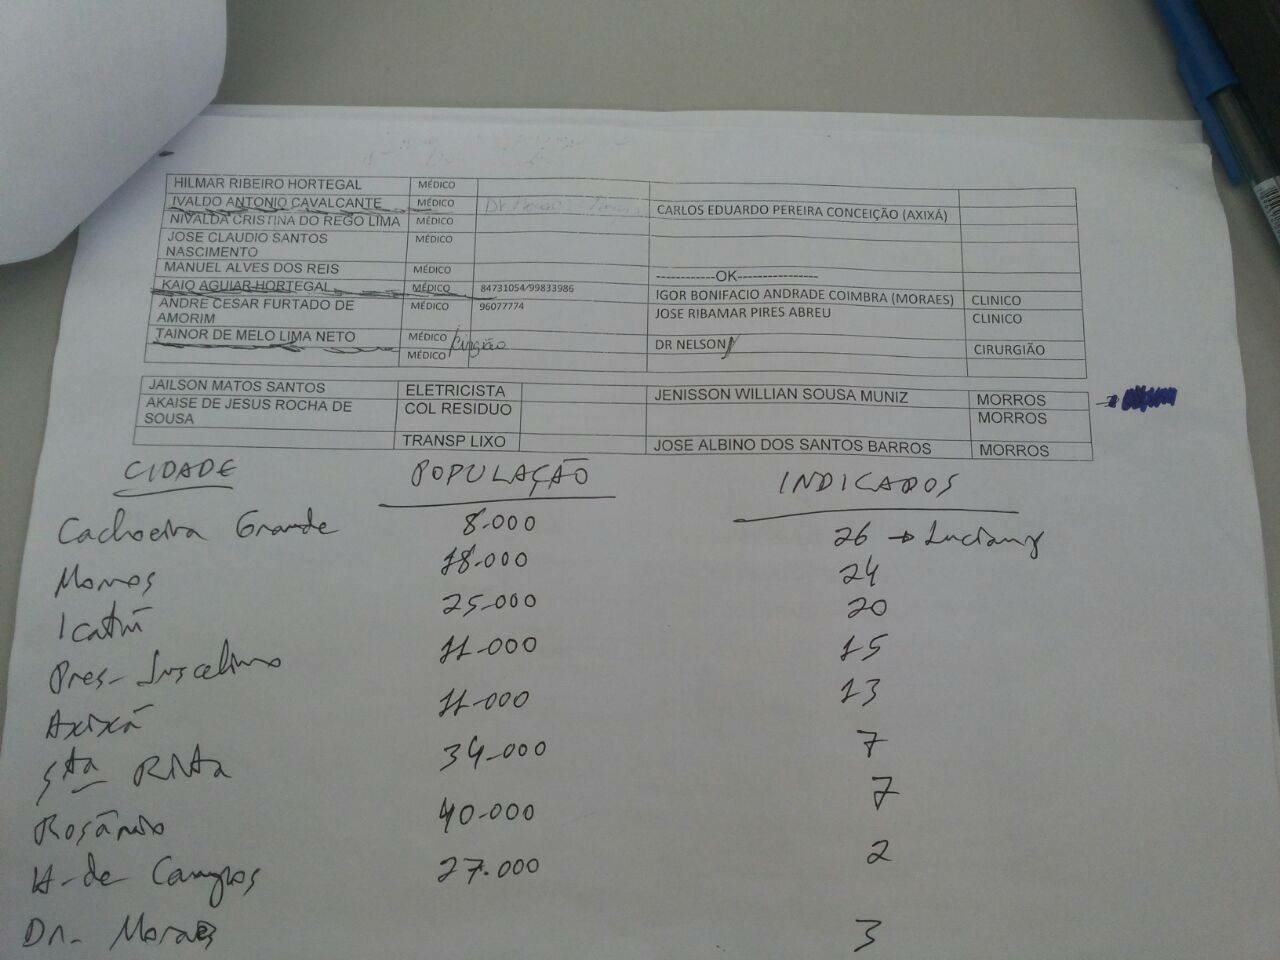 HILMAR RIBEIRO HORTEGAL MÉDICO
IVALDO ANTONIO CAVALCANTE MÉDICO Dr
NIVALDA CRISTINA DO REGO LIMA MÉDICO CARLOS EDUARDO PEREIRA CONCEIÇÃO (AXIXÁ)
JOSE CLAUDIO SANTOS MÉDICO
NASCIMENTO
MANUEL ALVES DOS REIS MÉDICO ------------OK----------------
KAIO AGUIAR HORTEGAL MÉDICO 84731054/99833986 IGOR BONIFACIO ANDRADE COIMBRA (MORAES) CLINICO
ANDRE CESAR FURTADO DE MÉDICO 96077774 JOSE RIBAMAR PIRES ABREU CLINICO
AMORIM
TAINOR DE MELO LIMA NETO MÉDICO Cirurgião DR NELSON CIRURGIÃO
MÉDICO
JAILSON MATOS SANTOS ELETRICISTA JENISSON WILLIAN SOUSA MUNIZ MORROS
AKAISE DE JESUS ROCHA DE COL RESIDUO MORROS
SOUSA
TRANSP LIXO JOSE ALBINO DOS SANTOS BARROS MORROS
CIDADE POPULAÇÃO INDICADOS
Cachoeira Grande 8.000 26 → Luciany
Morros 18.000 24
Icatú 25.000 20
Pres. Juscelino 11.000 15
Axixá 11.000 13
Sta Rita 34.000 7
Rosário 40.000 7
H. de Campos 27.000 2
Dr. Moraes 3